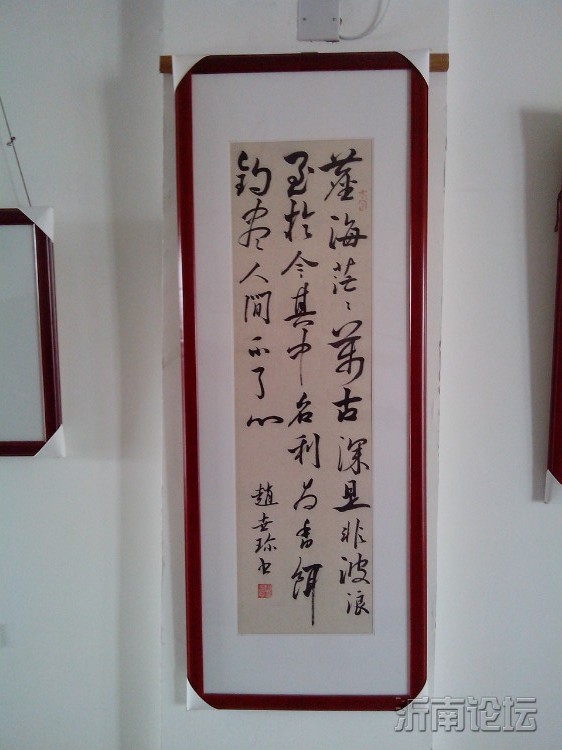 尘海茫茫万古深是非波浪
至於今其中名利为香餌
钓尽人间不了心
趙
书
沂南论坛